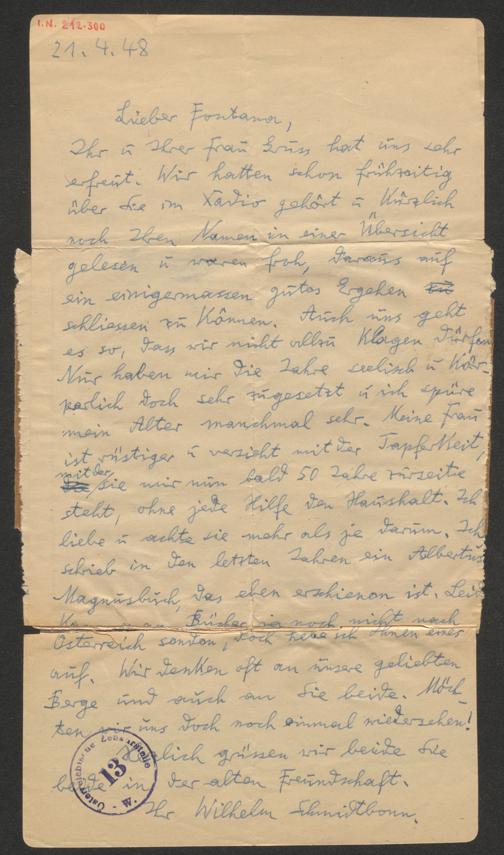 I.N. 212.300
21.4.48
Lieber Fontana,
Ihr u Ihrer Frau Gruss hat uns sehr
erfreut. Wir hatten schon frühzeitig
über Sie im Radio gehört u Kürzlich
noch Ihren Namen in einer Übersicht
gelesen u waren froh, daraus auf
ein einigermassen gutes Ergehen
schliessen zu Können. Auch uns geht
es so, dass wir nicht allzu Klagen dürfen
Nur haben mir die Jahre seelisch u Kör-
perlich doch sehr zugesetzt u ich spüre
mein Alter manchmal sehr. Meine Frau
ist rüstiger u versieht mit der TapferKeit,
mit der
sie mir nun bald 50 Jahre zurseite
steht, ohne jede Hilfe den Haushalt. Ich
liebe u achte sie mehr als je darum. Ich
schrieb in den letzten Jahren ein Albertus
Magnusbuch, das eben erschienen ist.
Bücher ja noch nicht nach
Österreich senden, doch hebe ich Ihnen eines
auf. Wir denKen oft an unsere geliebten
Berge und auch an Sie beide. Möch-
ten wir uns doch noch einmal wiedersehen!
Herzlich grüssen wir beide Sie
beide in der alten Freundschaft.
Ihr Wilhelm Schmidtbonn.
Österreichische Zensurstelle
13
W.